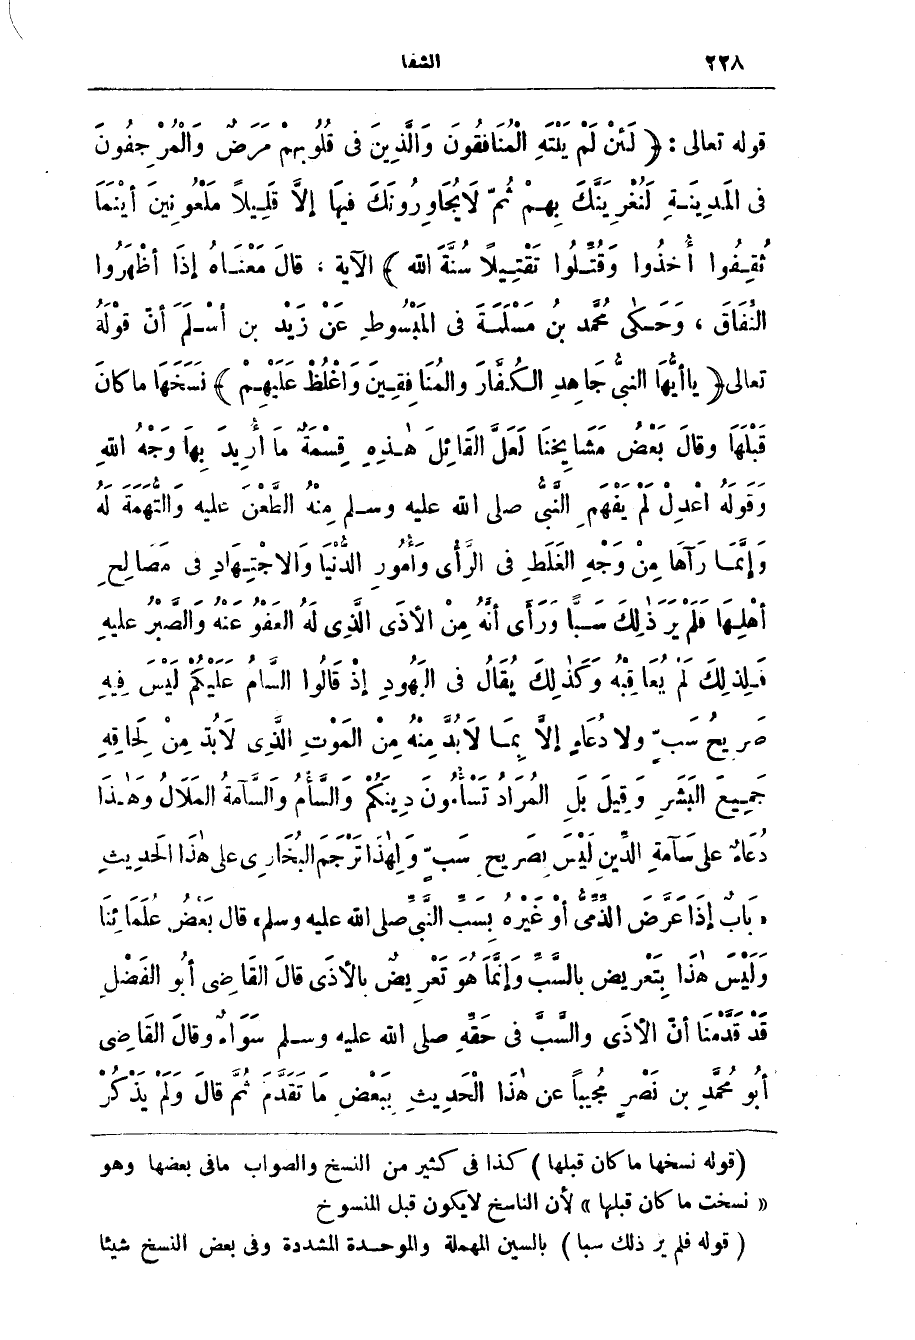 ٢٢٨
الشفا
قوله تعالى : ﴿ لَئِنْ لَمْ يَنْتَهِ الْمُنَافِقُونَ وَالَّذِينَ فى قُلُوبِهِمْ مَرَضٌ وَالْمُرْجِفُونَ
فى المَدِينَةِ لَنُغْرِيَنَّكَ بِهِمْ ثُمّ لَايُجَاوِرُونَكَ فِيهَا إلَّا قَلِيلاً مَلْعُونِينَ أيْنَمَا
ثُقِفُوا أُخِذُوا وَقُتِّلُوا تَقْتِيلاً سُنَّةَ الله ﴾ الآية ، قالَ مَعْنَاهُ إذَا أظْهَرُوا
النِّفَاقَ ، وَحَكَى مُحَمَّد بنُ مَسْلَمَةَ فى المَبْسُوطِ عَنْ زَيْد بن أسْلَمَ أنّ قولَهُ
تعالى ﴿ ياأيُّهَا النبىُّ جَاهِدِ الكُفَّارَ والمُنَافِقِينَ وَاغْلُظْ عَلَيْهِمْ ﴾ نَسَخَهَا ما كانَ
قَبْلَهَا وقالَ بَعْضُ مَشَايِخِنَا لَعَلَّ القَائِلَ هٰذِهِ قِسْمَةٌ مَا أُرِيدَ بِهَا وَجْهُ اللهِ
وَقَوْلَهُ اعْدِلْ لَمْ يَفْهَمِ النَّبىُّ صلى الله عليه وسلم مِنْهُ الطَّعْنَ عليه وَالتهَمَةَ لَهُ
وَإنَّمَا رَآهَا مِنْ وَجْهِ الغَلَطِ فى الرَّأى وَأُمُورِ الدُّنْيَا وَالاجْتِهَادِ فى مَصَالِحِ
أهْلِهَا فَلَمْ يَرَ ذٰلِكَ سَبًّا وَرَأى أنَّهُ مِنْ الأذَى الَّذِى لَهُ العَفْوُ عَنْهُ والصَّبْرُ عليه
فَلِذٰلِكَ لَمْ يُعَاقِبْهُ وَكَذٰلِكَ يُقَالُ فى اليَهُودِ إذْ قَالُوا السَّامُ عَلَيْكُمْ لَيْسَ فِيهِ
صَرِيحُ سَبّ ولا دُعَاءٍ إلَّا بِمَا لَابُدَّ مِنْهُ مِنْ المَوْتِ الذَّى لَابُدّ مِنْ لَحَاقِهِ
جَمِيعَ البَشَرِ وَقِيلَ بَلِ المُرَادُ تَسْأَمُونَ دِينَكُمْ وَالسَّأْمُ وَالسَّآمَةُ المَلَالُ وَهٰذَا
دُعَاءٌ على سَآمَةِ الدِّينِ لَيْسَ بِصَرِيحِ سَبّ وَلِهٰذَا تَرْجَمَ البُخَارِى على هٰذَا الحَدِيثِ
« بَابٌ إذَا عَرَّضَ الذِّمِّىُّ أوْ غَيْرُهُ بِسَبِّ النَّبِىِّ صلى الله عليه وسلم » قال بَعْضُ عُلَمَائِنَا
وَلَيْسَ هٰذَا بِتَعْرِيضٍ بالسَّبِّ وَإنَّمَا هُوَ تَعْرِيضٌ بِالْأذَى قالَ القَاضِى أبُو الفَضْلِ
قَدْ قَدَّمْنَا أنّ الأذَى والسَّبَّ فى حَقِّهِ صلى الله عليه وسلم سَوَاءٌ وقالَ القَاضِى
أبُو مُحَمَّدِ بن نَصْرٍ مُجِيباً عن هٰذَا الْحَدِيثِ بِبَعْضِ مَا تَقَدَّمَ ثُمَّ قالَ وَلَمْ يَذْكُرْ
(قوله نسخها ما كان قبلها) كذا فى كثير من النسخ والصواب مافى بعضها وهو
« نسخت ما كان قبلها » لأن الناسخ لايكون قبل المنسوخ
( قوله فلم ير ذلك سبا ) بالسين المهملة والموحدة المشددة وفى بعض النسخ شيئا